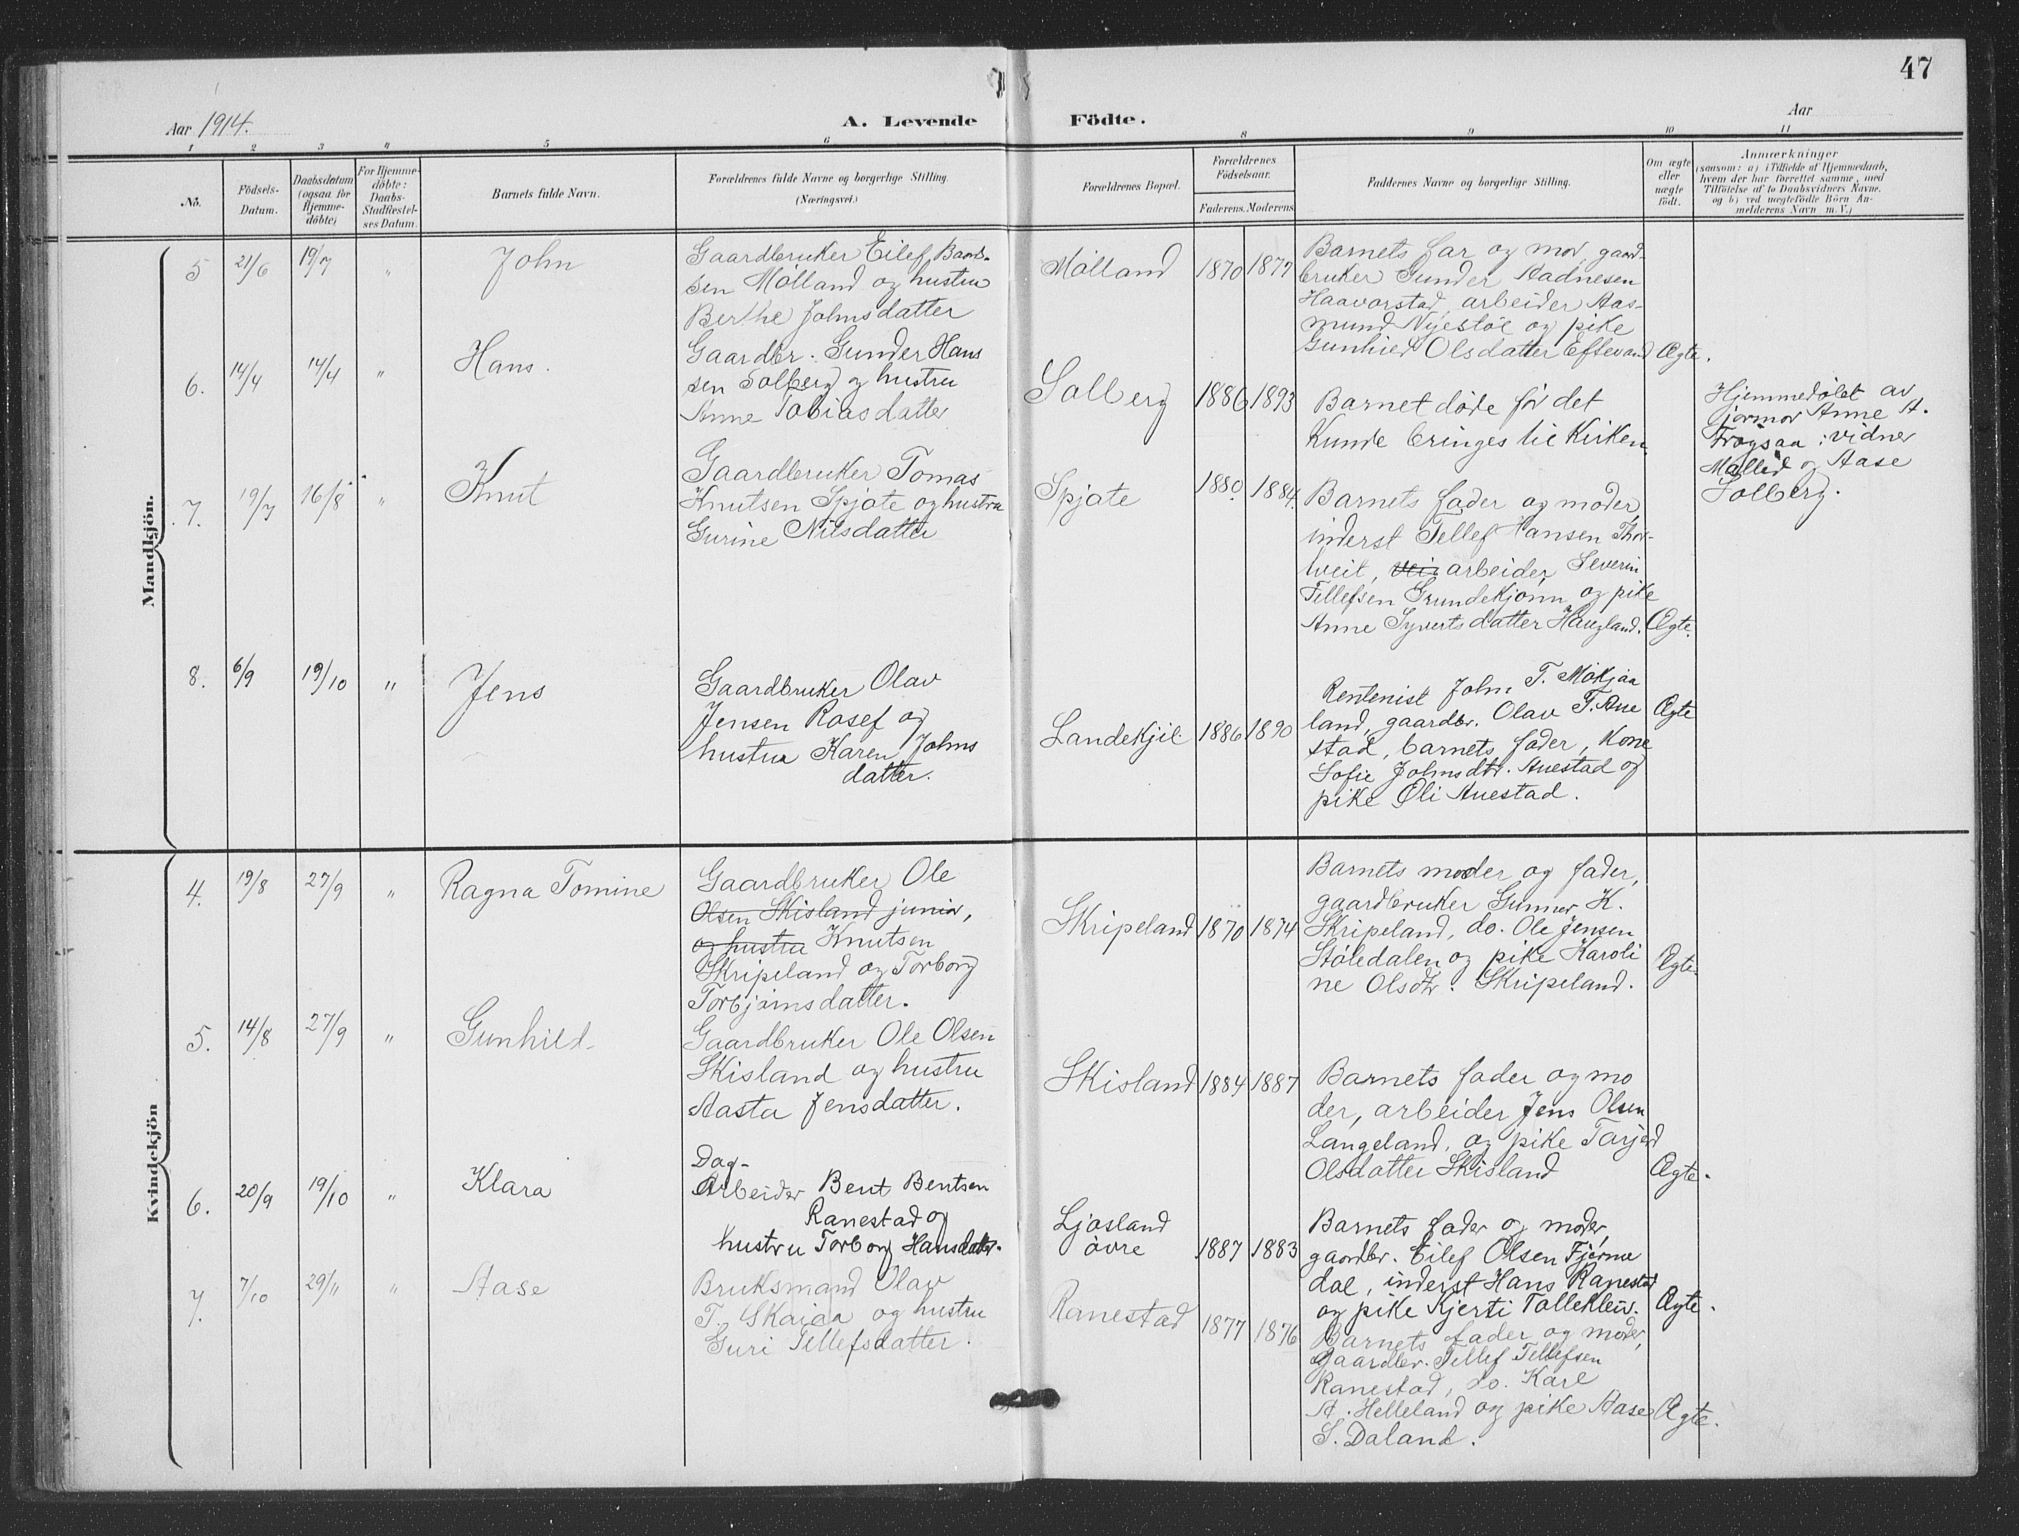 47
Aar 1914.
A. Levende Födte.
Aar
1 2 3 4 5 6 8 9 10 11
No.
Födsels-
Datum.
Daabsdatum
(ogsaa for
Hjemme-
döbte)
For Hjemme-
döbte:
Daabs-
Stadfæstel-
ses Datum.
Barnets fulde Navn.
Forældrenes fulde Navne og borgerlige Stilling.
(Næringsvei.)
Forældrenes Bopæl.
Forældrenes
Födselsaar.
Faderens. Moderens.
Faddernes Navne og borgerlige Stilling.
Om ægte
eller
uægte
födt.
Anmærkninger
(saasom: a) i Tilfælde af Hjemmedaab,
hvem der har forrettet samme, med
Tilföielse af to Daabsvidners Navne.
og b) ved uægtefödte Börn An-
melderens Navn m. V.)
Mandkjön.
5 21/6 19/7 "
John
Gaardbruker Eilef Baards-
sen Mölland og hustru
Berthe Johnsdatter
Mölland
1870 1877
Barnets far og mor, gaard-
bruker Gunder Aadnesen
Haavorstad, arbeider Aas-
mund Nyestöl og pike
Gunhild Olsdatter Eftevand Ægte.
6. 14/4 14/4 "
Hans.
Gaardbr. Gunder Hans
sen Solberg og hustru
Anne Tobiasdatter
Solberg
1886 1893
Barnet döde för det
Kunde bringes til Kirken.
Hjemmedöbt av
jormor Anne A.
Trogsaa: vidner
og Aase
Solberg.
7. 19/7 16/8 "
Knut
Gaardbruker Tomas
Knutsen Spjote og hustru
Gurine Nilsdatter
Spjote
1880. 1884.
Barnets fader og moder,
inderst Tellef Hansen Thor-
tveit, vei arbeider Severin
Tellefsen Grundekjönn og pike
Anne Syvertsdatter Haugland. Ægte.
8. 6/9 19/10 "
Jens
Gaardbruker Olav
Jensen Rosef og
hustru Karen Johns
datter.
Landekjil
1886 1890
Rentenist John T. Mökjaa
land, gaardbr. Olav T. Aue
stad, barnets fader, Kone
Sofie Johnsdtr. Auestad og
pike Oli Auestad.
Ægte
Kvindekjön
4. 19/8 27/9 "
Ragna Tomine
Gaardbruker Ole
Olsen Skisland junior,
og hustru Knutsen
Skripeland og Torborg
Torbjörnsdatter.
Skripeland
1870 1874
Barnets moder og fader,
gaardbruker Gunner K.
Skripeland, do. Ole Jensen
Stöledalen og pike Karoli
ne Olsdtr. Skripeland.
Ægte.
5. 14/8 27/9 "
Gunhild
Gaardbruker Ole Olsen
Skisland og hustru
Aasta Jensdatter.
Skisland
1884 1887
Barnets fader og mo
der, arbeider Jens Olsen
Langeland, og pike Tarjerd
Olsdatter Skisland
Ægte.
6. 20/9 19/10 "
Klara
Dag-
Arbeider Bent Bentsen
Ranestad og
hustru Torborg Hansdatr.
Ljosland
övre
1887 1883
Barnets fader og moder,
gaardbr. Eilef Olsen Fjerme
dal, inderst Hans Ranestad
og pike Kjerti Tallekleiv.
Ægte.
7. 7/10 29/11 "
Aase
Bruksmand Olav
T. Skaiaa og hustru
Guri Tellefsdatter.
Ranestad
1877 1876
Barnets fader og moder,
Gaardbr. Tellef Tellefsen
Ranestad, do. Karl
A. Helleland og pike Aase
S. Daland.
Ægte.